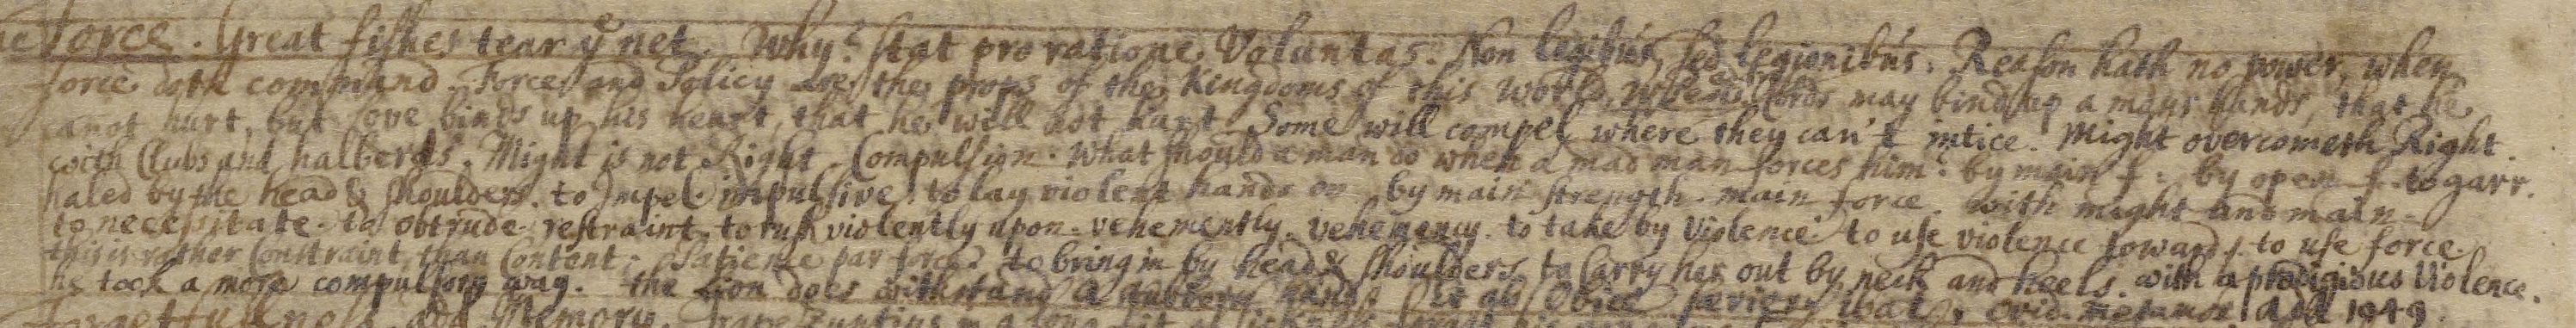 Force. Great fishes tear yͤ net. Why? stat pro ratione Voluntas. Non legibus, sed legionibus. Reason hath no power, when
force doth command. Force and Policy are the props of the Kingdoms of this World. Cords may bind up a mans hands, that he
canot hurt, but love binds up his heart, that he will not hurt. Some will compel where they can't intice. Might overcometh Right.
with Clubs and halberds. Might is not Right. Compulsion. What should a man do when a mad man forces him? by main f: by open f. to garr.
haled by the head & shoulders. to Impel impulsive. to lay violent hands on by main strength. main force. with might and main.
to necessitate. to obtrude. restraint. to rush violently upon. vehemently. vehemency. to take by Violence to use violence towards. to use force.
this is rather Constraint, than Content. Patience par force. to bring in by head & shoulders. to Carry her out by neck and heels. with a prodigious Violence.
he took a more compulsory way. the Lion does withstand ab Obice ibat. Ovid. Metamor. Add 1949.
Memory.